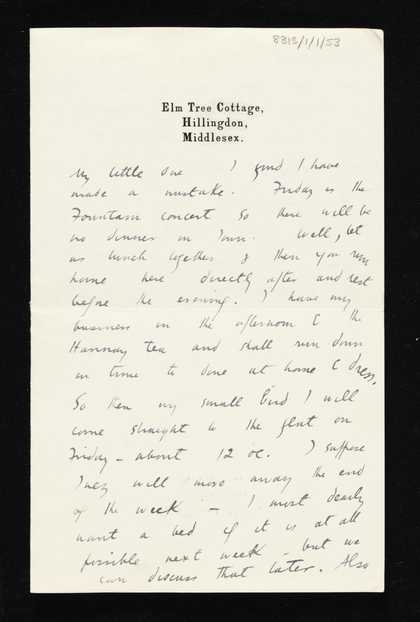 8313/1/1/53
Elm Tree Cottage,
Hillingdon,
Middlesex.
My little One I find I have
made a mistake. Friday is the
Fountain concert so there will be
no dinner in Town. Well, let
us lunch together & then you run
home here directly after and rest
before the evening. I have my
business in the afternoon & the
Hannay tea and shall run down
in time to dine at home & dress.
So then my small bird I will
come straight to the flat on
Friday – about 12 oc. I suppose
Juey will move away the end
of the week – I most dearly
want a bed if it is at all
possible next week – but we
can discuss that later. Also